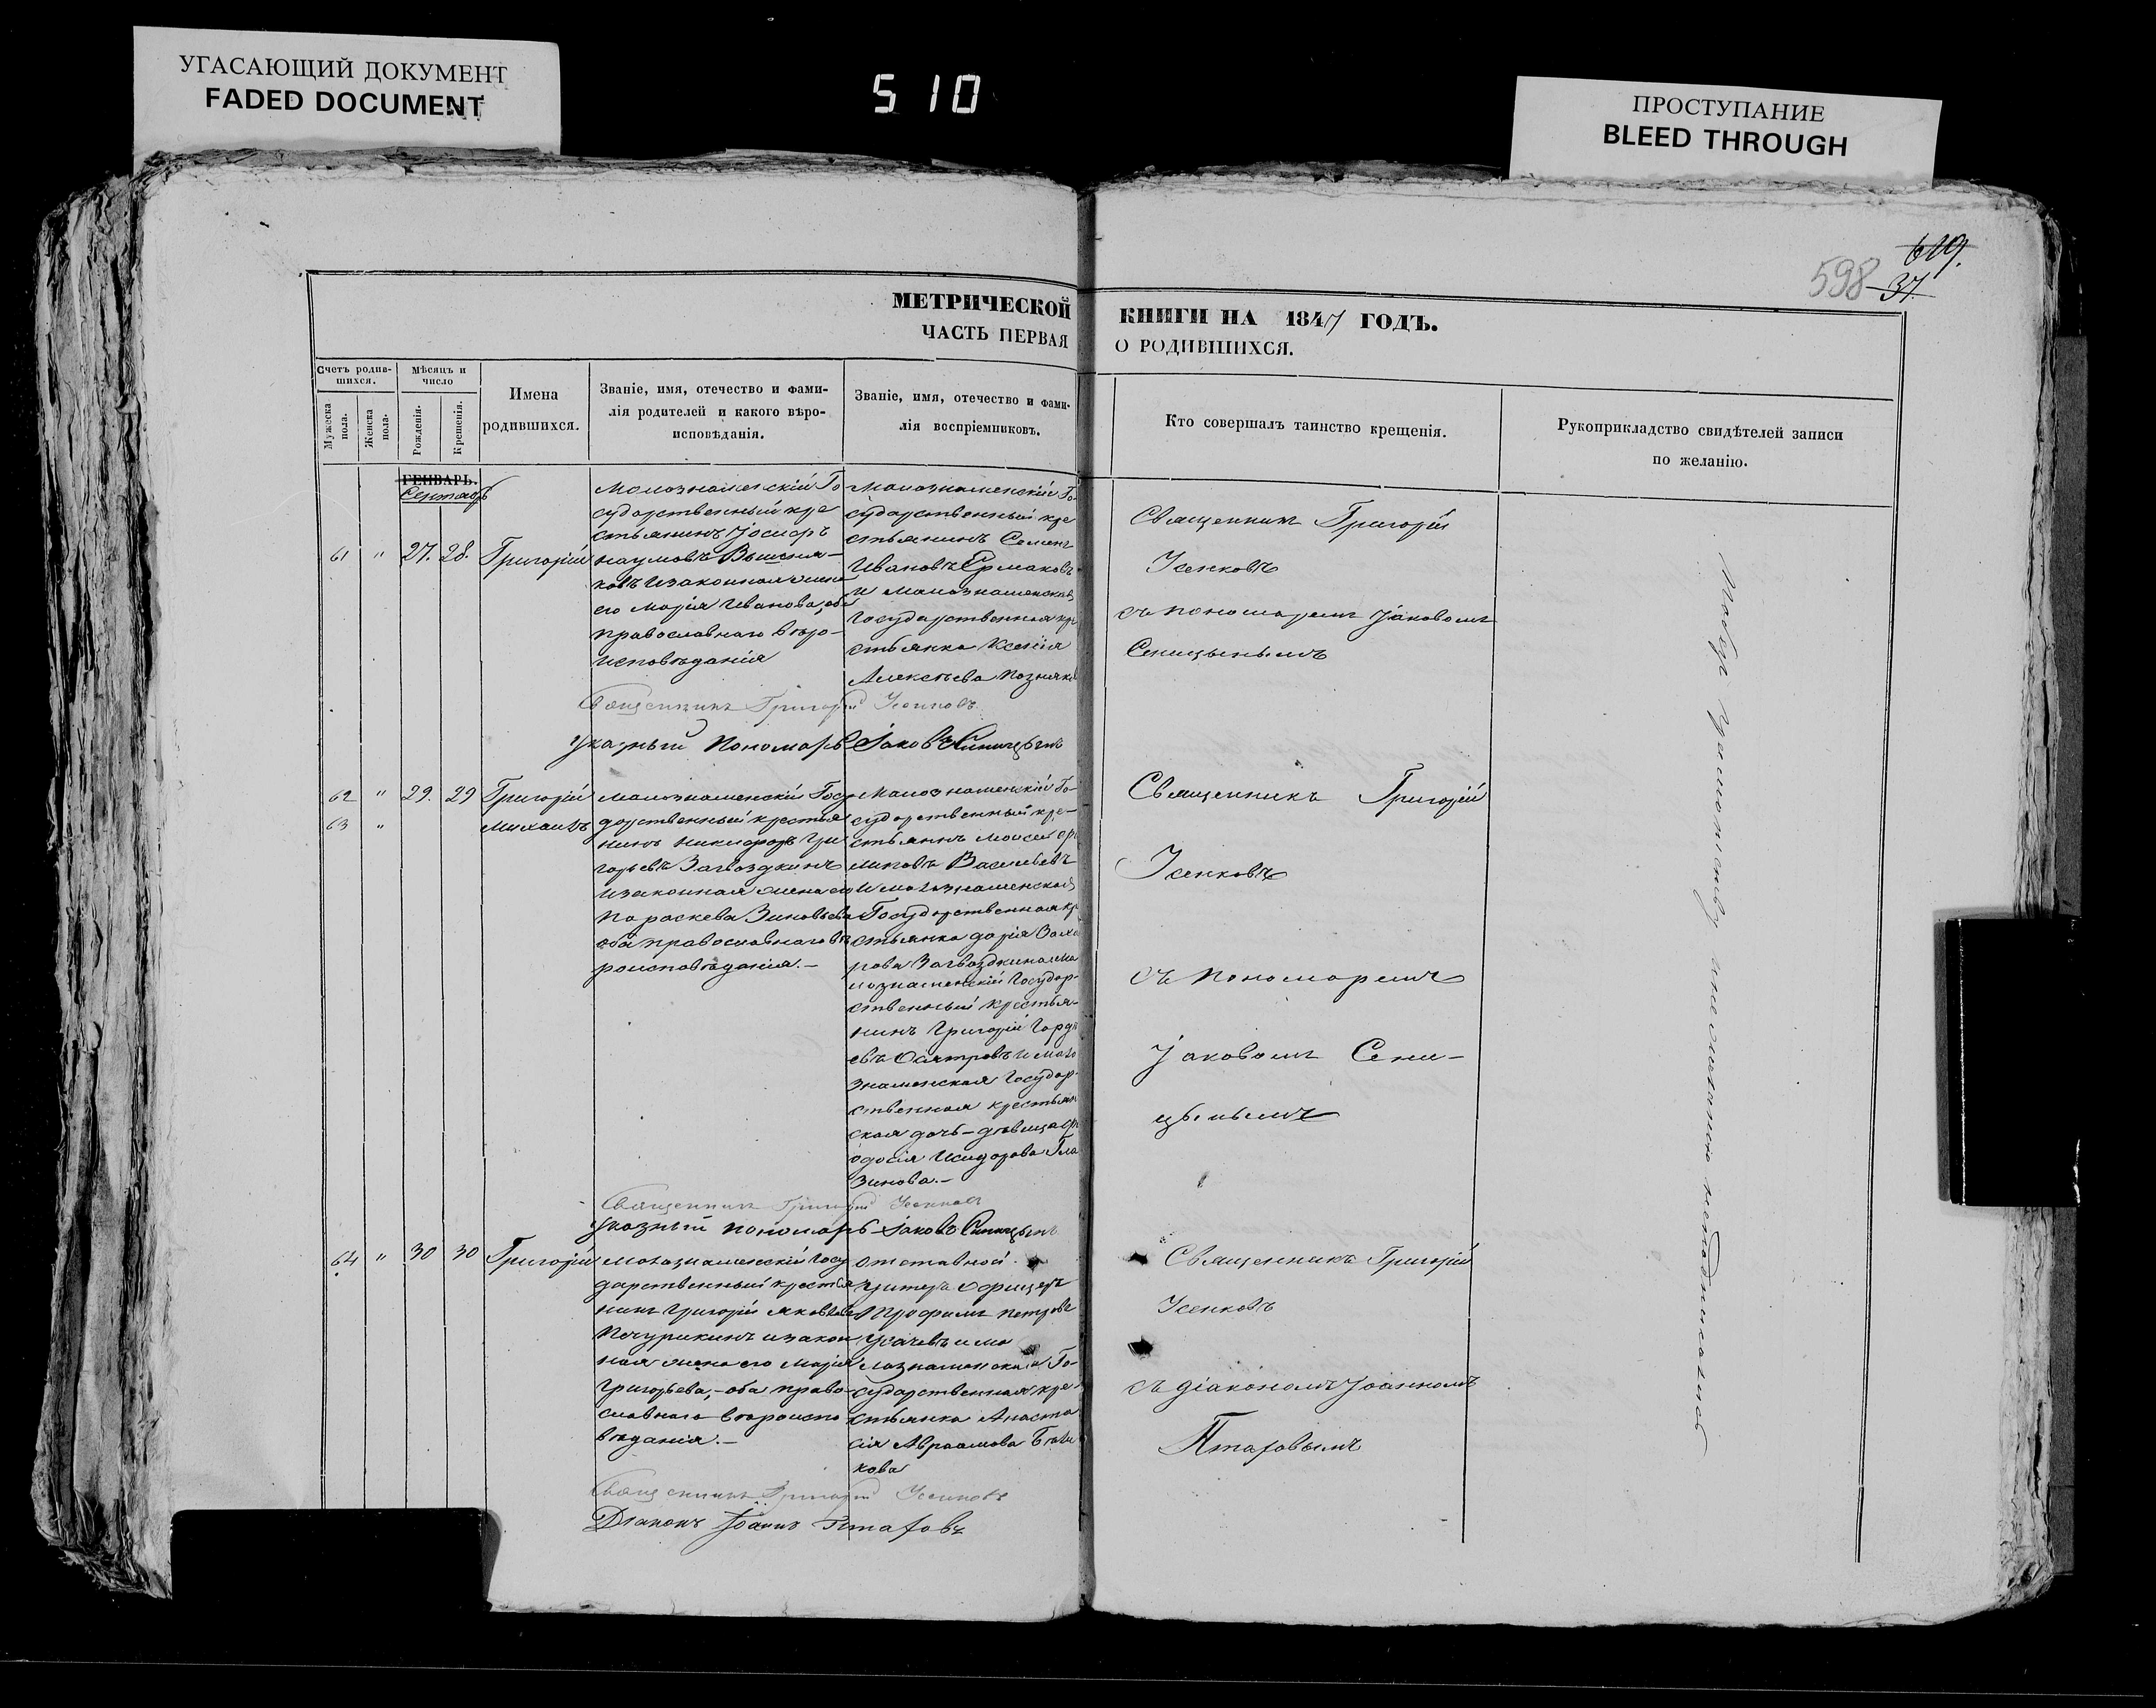 УГАСАЮЩИЙ ДОКУМЕНТ
FADED DOCUMENT
510
ПРОСТУПАНИЕ
BLEED THROUGH
619.
598
37
МЕТРИЧЕСКОЙ
КНИГИ НА 1847 ГОДЪ.
ЧАСТЬ ПЕРВАЯ
О РОДИВШИХСЯ.
Счетъ родив-
шихся.
Мужеска пола.
Женска пола.
Мѣсяцъ и
число
Рожденія.
Крещенія.
Имена
родившихся.
Званіе, имя, отечество и фами-
лія родителей и какого вѣро-
исповѣданія.
Званіе, имя, отечество и фами-
лія воспріемниковъ.
Кто совершалъ таинство крещенія.
Рукоприкладство свидѣтелей записи
по желанію.
ГЕНВАРЬ.
Сентябрь
61 " 27. 28. Григорій
Малознаменскій Го
сударственный кре
стьянинъ Іосифъ
Наумовъ Вышеня-
ковъ и законная жена
его Марія Иванова, оба
православнаго вѣро-
исповѣданія
Малознаменскій Го-
сударственный кре
стьянинъ Семенъ
Ивановъ Ермаковъ
и малознаменская
Государственная кре
стьянка Ксенія
Алексѣева Позняков
Священникъ Григорій
Усенковъ
съ пономаремъ Іаковомъ
Сеницынымъ
Священникъ Григорій Усенковъ
Указный Пономарь Іаковъ Синицынъ
62 " 29. 29 Григорій
63 " Михаилъ
Малознаменскій Госу
дарственный крестья
нинъ Никифоръ Гри
горьевъ Загвоздкинъ
и законная жена его
Параскева Зиновьева
оба православнаго вѣ
роисповѣданія.-
Малознаменскій Го-
сударственный кре-
стьянинъ Моисей
Васильевъ
и малознаменская
Государственная кр
стьянка Дарія Заха
рова Загвоздкина и ма
лознаменскій Государ-
ственный крестья-
нинъ Григорій Горде
евъ Осятровъ и мало
знаменская Государ-
ственная крестьян
ская дочь-дѣвица Ѳе
одосія Исидорова Гла
зинова.-
Священникъ Григорій
Усенковъ
съ пономаремъ
Іаковомъ Сени-
цынымъ
Священникъ Григорій Усенковъ
Указный Пономарь Іаковъ Синицынъ
64 " 30 30 Григорій
Малознаменскій Госу
дарственный крестья
нинъ Григорій Яковлевъ
Печурикинъ и закон
ная жена его Марія
Григорьева,-оба право-
славнаго вѣроиспо
вѣданія.-
Отставной
Унтеръ Офицеръ
Трофимъ Петровъ
Усачевъ и ма
лознаменская Го-
сударственная кре-
стьянка Анаста
сія Авраамова
кова
Священникъ Григорій
Усенковъ
съ діакономъ Іоанномъ
Птаховымъ
Священникъ Григорій Усенковъ
Діаконъ Іоаннъ Птаховъ